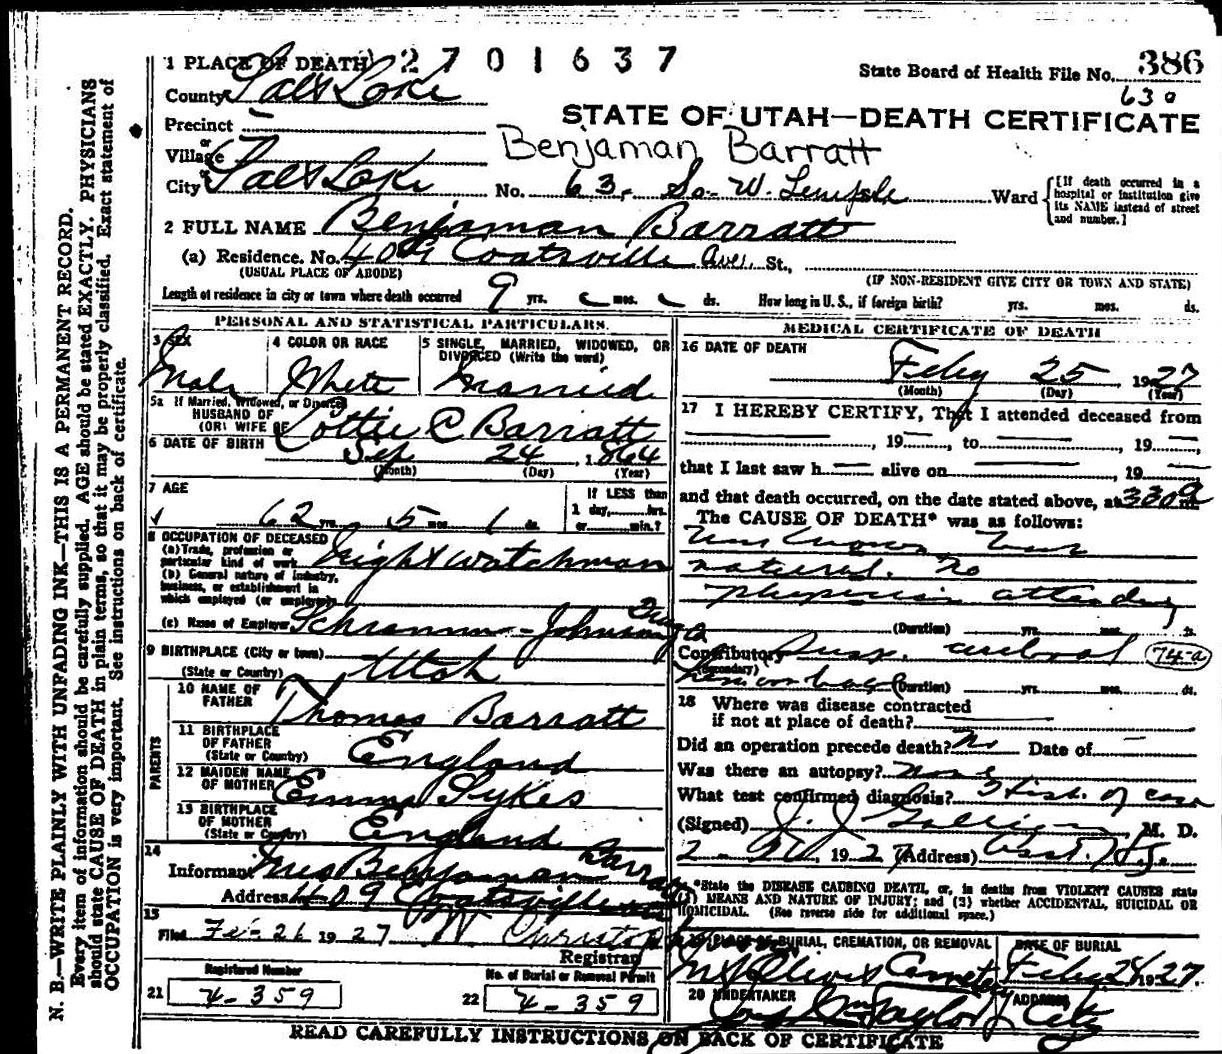 1 PLACE OF DEATH 2 7 0 1 6 3 7
State Board of Health File No. 386
630
County Salt Lake
STATE OF UTAH—DEATH CERTIFICATE
Precinct
or
Village
Benjaman Barratt
or
City Salt Lake No. 63 So. W. Temple Ward
[If death occurred in a hospital or institution give its NAME instead of street and number.]
2 FULL NAME Benjaman Barratt
(a) Residence. No. 409 Coatsville Ave. St.,
(USUAL PLACE OF ABODE) (IF NON-RESIDENT GIVE CITY OR TOWN AND STATE)
Length of residence in city or town where death occurred 9 yrs. mos. ds. How long in U. S., if foreign birth? yrs. mos. ds.
PERSONAL AND STATISTICAL PARTICULARS.
3 SEX
Male
4 COLOR OR RACE
White
5 SINGLE, MARRIED, WIDOWED, OR
DIVORCED (Write the word)
Married
5a If Married, Widowed, or Divorced
HUSBAND OF
(OR) WIFE OF Lottie C Barratt
6 DATE OF BIRTH Sep 24, 1864
(Month) (Day) (Year)
7 AGE
62 yrs. 5 mos. 1 ds.
If LESS than
1 day, hrs.
or min.?
8 OCCUPATION OF DECEASED
(a) Trade, profession or
particular kind of work Night watchman
(b) General nature of industry,
business, or establishment in
which employed (or employer)
(c) Name of Employer Schramm-Johnson Drug Co
9 BIRTHPLACE (City or town)
(State or Country) Utah
PARENTS
10 NAME OF
FATHER Thomas Barratt
11 BIRTHPLACE
OF FATHER
(State or Country) England
12 MAIDEN NAME
OF MOTHER Emma Sykes
13 BIRTHPLACE
OF MOTHER
(State or Country) England
14
Informant Mrs Benjaman Barratt
Address 409 Coatsville
15
Filed Fe-26 1927
Registrar
Registered Number
21 4-359
No. of Burial or Removal Permit
22 4-359
MEDICAL CERTIFICATE OF DEATH
16 DATE OF DEATH
Feby 25 1927
(Month) (Day) (Year)
17 I HEREBY CERTIFY, That I attended deceased from
, 19 , to , 19
that I last saw h alive on , 19
and that death occurred, on the date stated above, at 330 a m.
The CAUSE OF DEATH* was as follows:
Unknown but
natural. No
physician attending
(Duration) yrs. mos. ds.
Contributory Susp. cerebral 74-a
(Secondary)
hemorrhage (Duration) yrs. mos. ds.
18 Where was disease contracted
if not at place of death?
Did an operation precede death? No Date of
Was there an autopsy? none
What test confirmed diagnosis? Hist. of case
(Signed) J. J. Galligan, M. D.
2-26, 1927 (Address)
*State the DISEASE CAUSING DEATH, or, in deaths from VIOLENT CAUSES state
(1) MEANS AND NATURE OF INJURY; and (2) whether ACCIDENTAL, SUICIDAL OR
HOMICIDAL. (See reverse side for additional space.)
19 PLACE OF BURIAL, CREMATION, OR REMOVAL
Mt Olivet Cemetery
DATE OF BURIAL
Feby 28 1927.
20 UNDERTAKER
Taylor
ADDRESS
City
READ CAREFULLY INSTRUCTIONS ON BACK OF CERTIFICATE
N. B.—WRITE PLAINLY WITH UNFADING INK—THIS IS A PERMANENT RECORD.
Every item of information should be carefully supplied. AGE should be stated EXACTLY. PHYSICIANS
should state CAUSE OF DEATH in plain terms, so that it may be properly classified. Exact statement of
OCCUPATION is very important. See instructions on back of certificate.